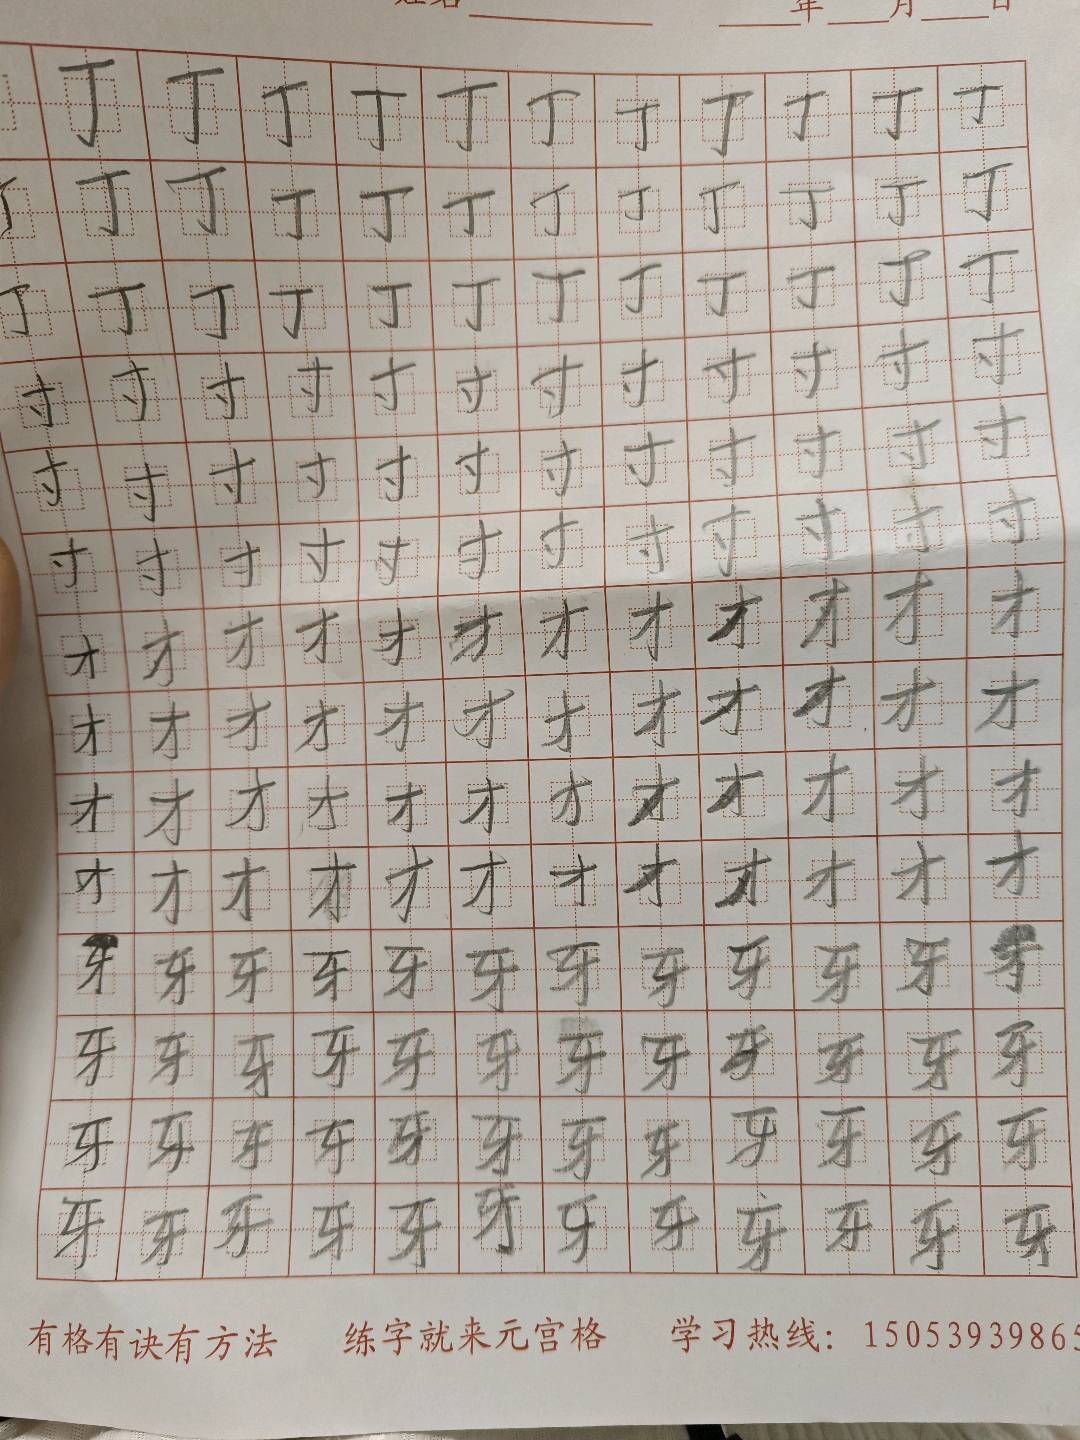 姓名 年 月 日
丁丁丁丁丁丁丁丁丁丁丁
丁丁丁丁丁丁丁丁丁丁丁
丁丁丁丁丁丁丁丁丁丁丁丁
寸寸寸寸寸寸寸寸寸寸寸寸
寸寸寸寸寸寸寸寸寸寸寸寸
寸寸寸寸寸寸寸寸寸寸寸寸
才才才才才才才才才才才才
才才才才才才才才才才才才
才才才才才才才才才才才才
才才才才才才才才才才才才
牙牙牙牙牙牙牙牙牙牙牙牙
牙牙牙牙牙牙牙牙牙牙牙牙
牙牙牙牙牙牙牙牙牙牙牙牙
牙牙牙牙牙牙牙牙牙牙牙牙
有格有诀有方法 练字就来元宫格 学习热线: 15053939865